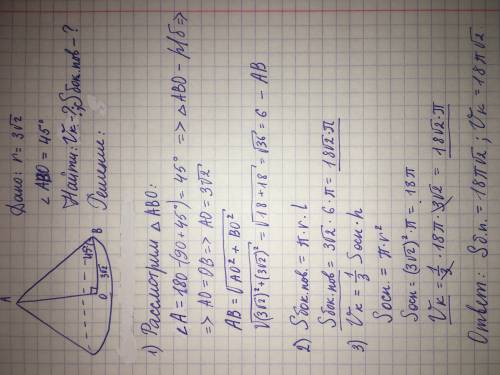 Дано: r = 3√2
∠ABO = 45°
Найти: Vк-?; Sбок.пов-?
Решение:
A
45°
B
O
3√2
1) Рассмотрим △ABO:
∠A = 180-(90+45°) = 45° => △ABO - р/б =>
=> AO = OB => AO = 3√2
AB = √AO² + BO²
√(3√2)² + (3√2)² = √18 + 18 = √36 = 6 - AB
2) Sбок.пов = π · r · l
Sбок.пов = 3√2 · 6 · π = 18√2 · π
3) Vк = 1/3 Sосн · h
Sосн = π · r²
Sосн = (3√2)² · π = 18π
Vк = 1/3 · 18π · 3√2 = 18√2 · π
Ответ: Sб.п. = 18π√2; Vк = 18π√2